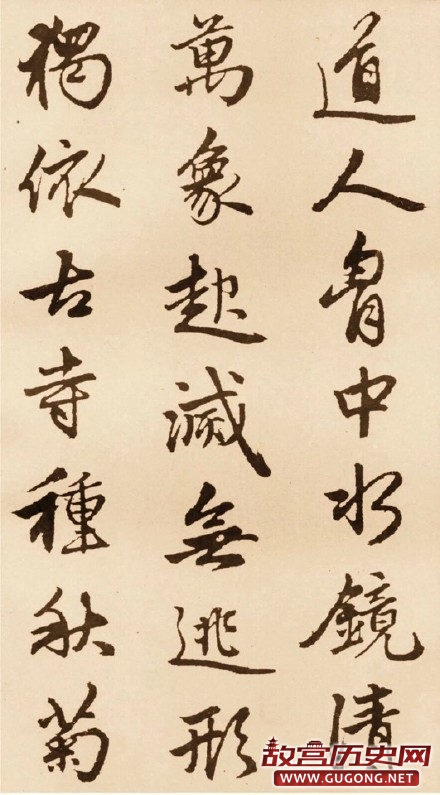 道人胷中水鏡清
萬象起滅無逃形
獨依古寺種秋菊
故宫历史网
WWW.GUGONG.NET